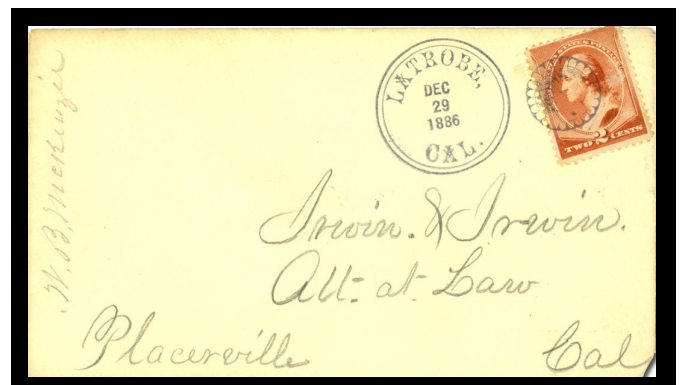 W. B. McKenzie
LATROBE,
DEC
29
1886
CAL.
UNITED STATES POSTAGE
TWO 2 CENTS
Irwin. & Irwin.
Att: at. Law
Placerville Cal